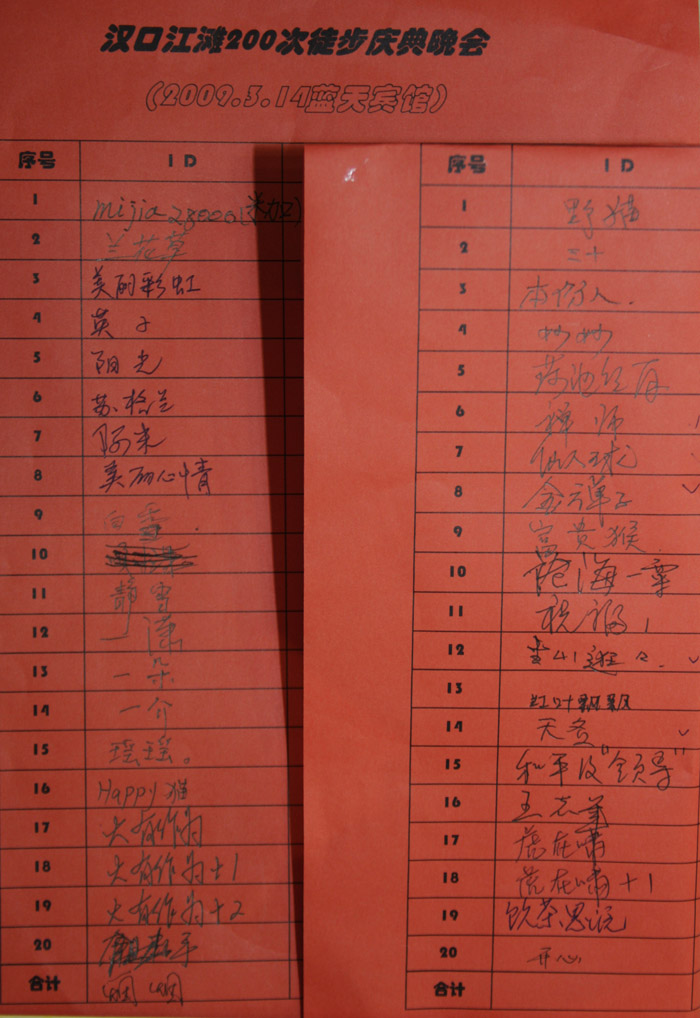 汉口江滩200次徒步庆典晚会
(2009.3.14蓝天宾馆)
序号 ID
1 mijia28000(米加)
2 兰花草
3 美丽彩虹
4 英子
5 阳光
6 苏格兰
7 阿米
8 美丽心情
9 白雪
10
11 静雪
12 一漾
13 一朵
14 一介
15 瑶瑶。
16 Happy猫
17 大有作为
18 大有作为+1
19 大有作为+2
20
合计 烟烟
序号 ID
1 野猫
2 三十
3 本份人.
4 妙妙
5
6
7 仙人球
8 金六弹子
9 富贵猴
10 沧海一粟
11 祝福
12
13 红叶飘飘
14 天堂
15 和平及"领导"
16
17 虎在啸
18 虎在啸+1
19 饮茶思源
20 开心
合计